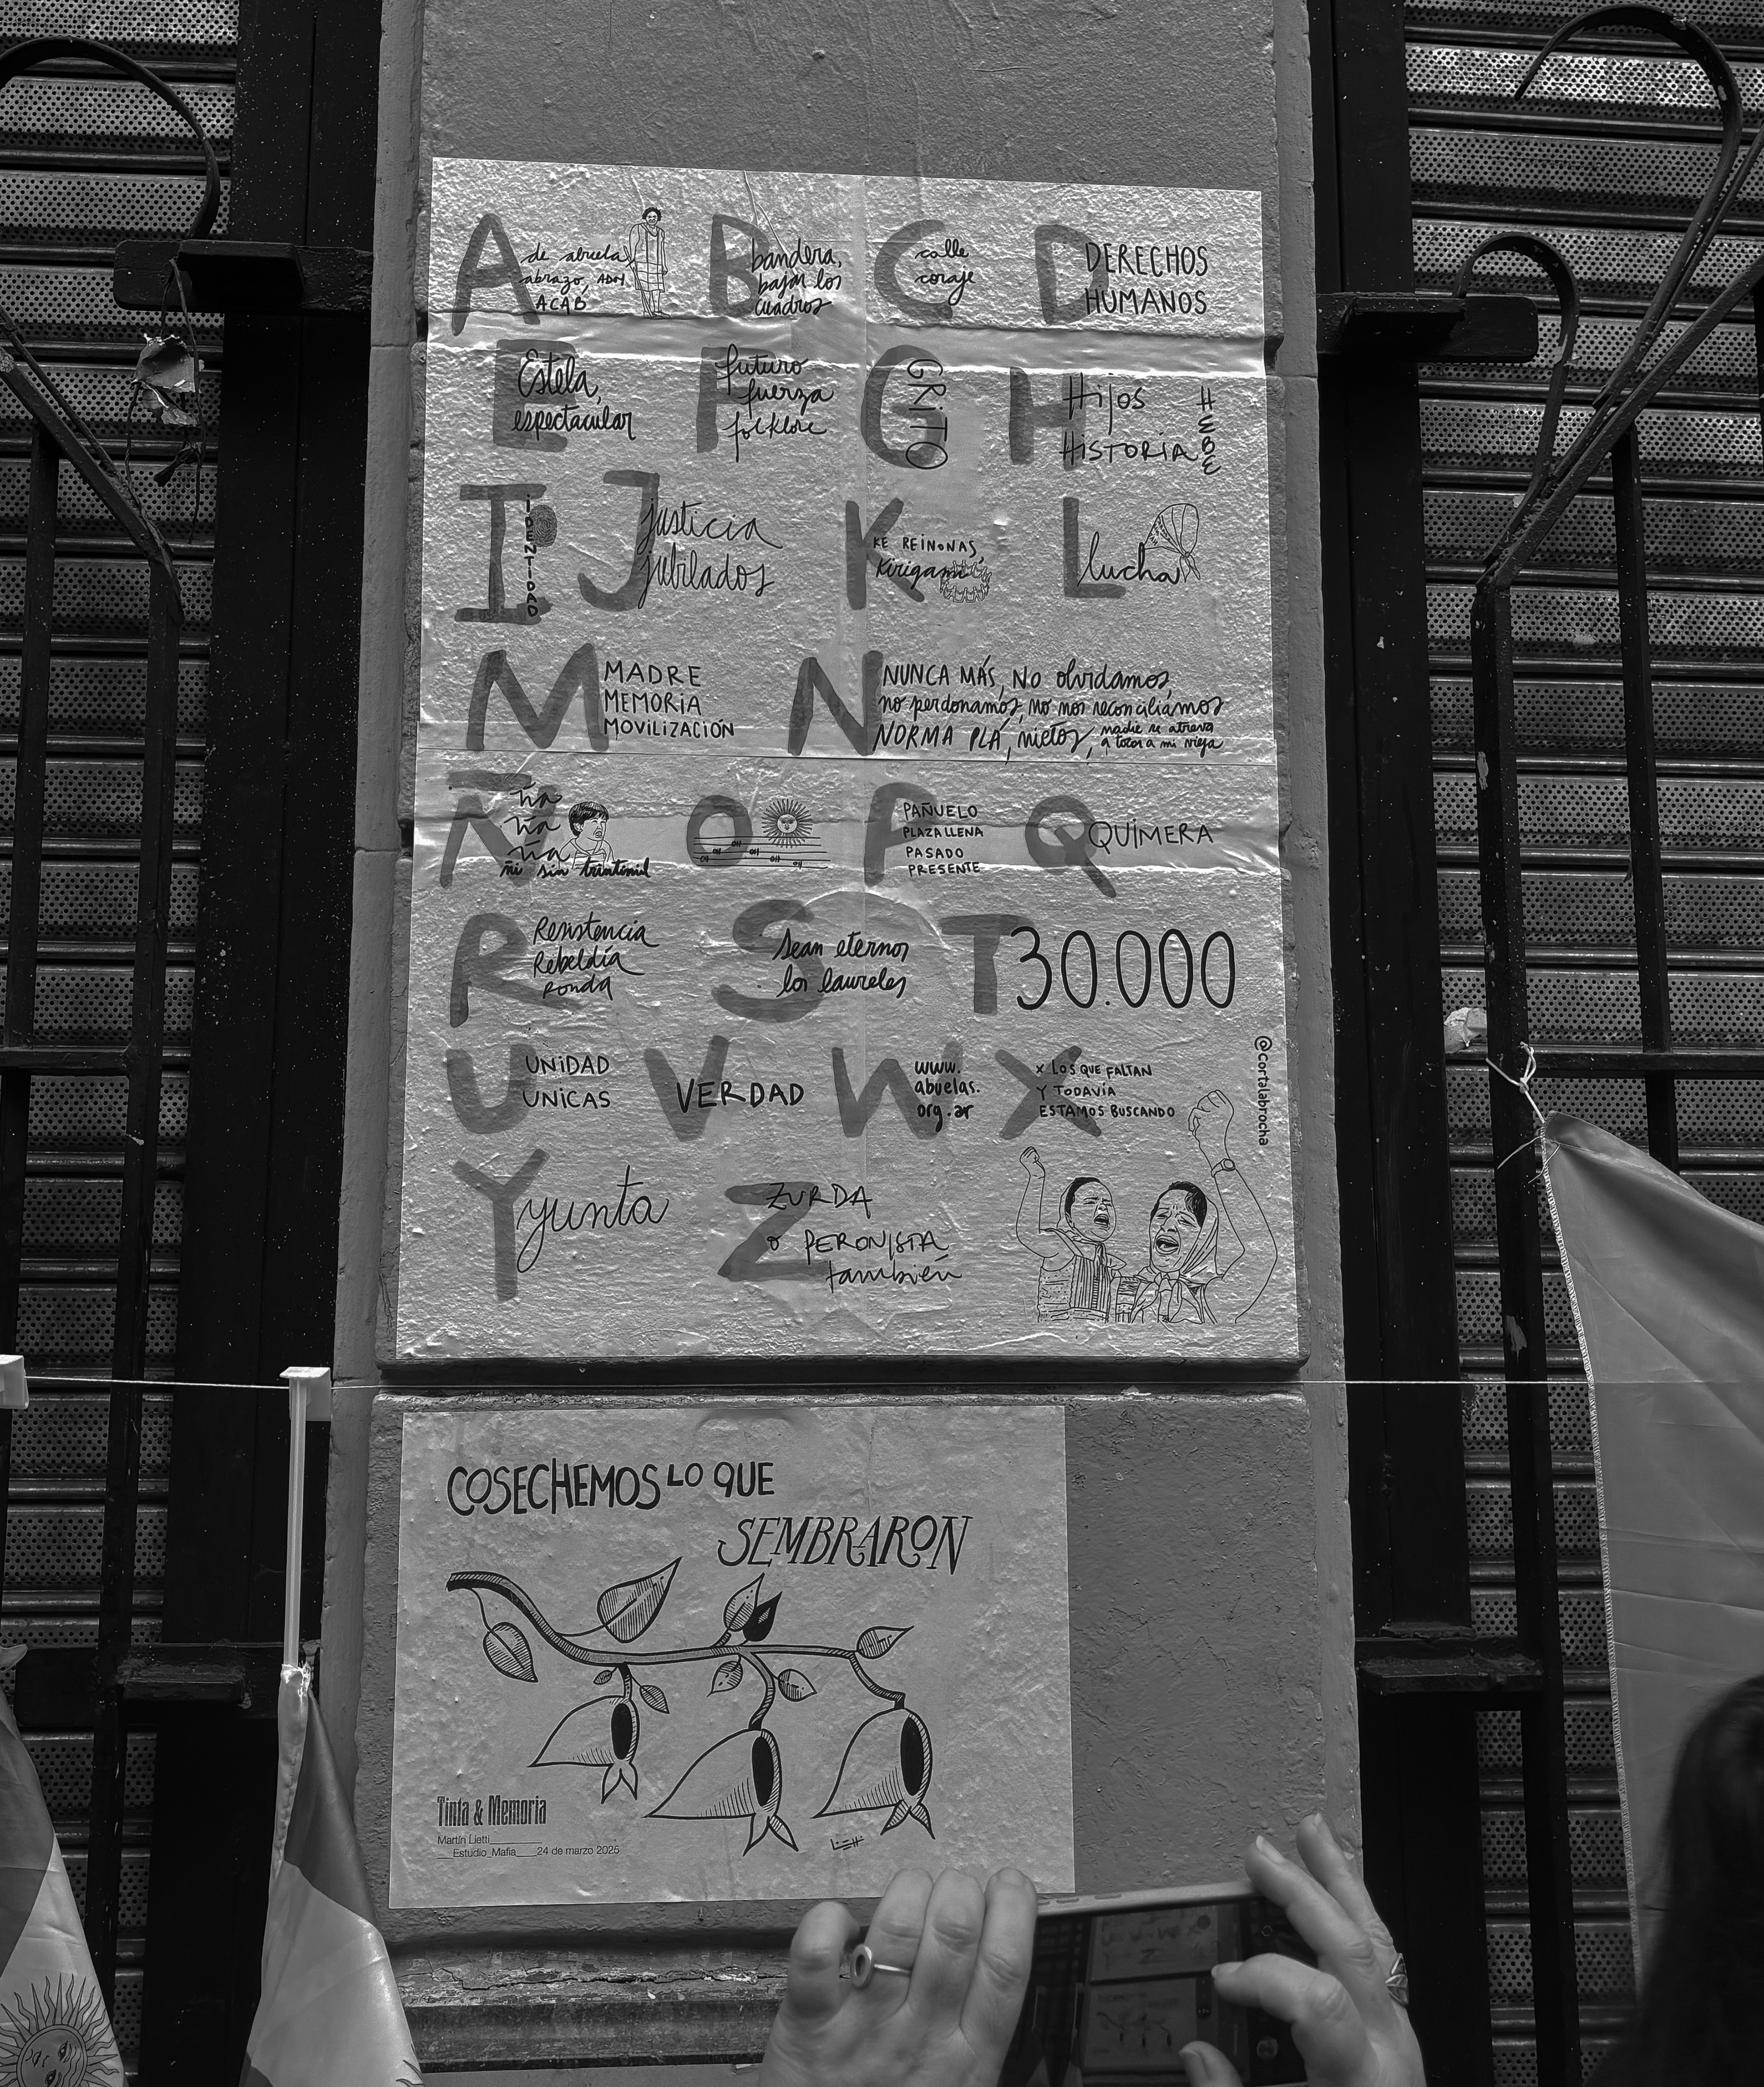 A
de abuela
abrazo, ADN
ACAB
B
bandera,
bajar los
cuadros
C
calle
coraje
D
DERECHOS
HUMANOS
E
Estela,
espectacular
F
futuro
fuerza
folklore
G
GRITO
H
Hijos
HISTORIA
HEBE
I
IDENTIDAD
J
justicia
jubilados
K
KE REINONAS,
Kirigami
L
lucha
M
MADRE
MEMORIA
MOVILIZACIÓN
N
NUNCA MÁS, NO olvidamos,
no perdonamos, no nos reconciliamos
NORMA PLÁ, nietos, nadie se atreva
a tocar a mi vieja
Ñ
ña
ña
ña
ñi sin trintimil
O
oíd oíd oíd oíd oíd
P
PAÑUELO
PLAZA LLENA
PASADO
PRESENTE
Q
QUIMERA
R
Resistencia
Rebeldía
Ronda
S
sean eternos
los laureles
T
30.000
U
UNIDAD
UNICAS
V
VERDAD
W
www.
abuelas.
org.ar
X
X LOS QUE FALTAN
Y TODAVÍA
ESTAMOS BUSCANDO
@cortalabrocha
Y
yunta
Z
ZURDA
o PERONISTA
también
COSECHEMOS LO QUE
SEMBRARON
Tinta & Memoria
Martín Lietti
Estudio_Mafia____24 de marzo 2025